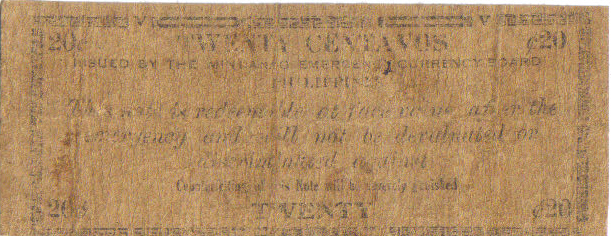 20¢ TWENTY CENTAVOS ¢20
ISSUED BY THE MINDANAO EMERGENCY CURRENCY BOARD
PHILIPPINES
This note is redeemable at face value after the
emergency and will not be devaluated or
discriminated against
Counterfeiting of this Note will be severely punished
20¢ TWENTY ¢20